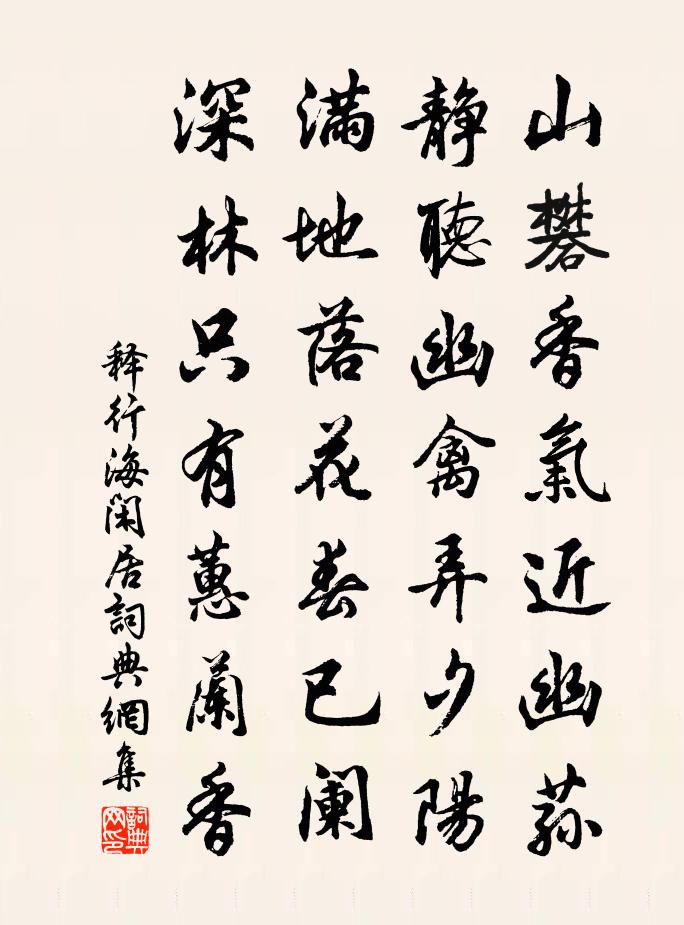 山礬香氣近幽蓀
静聴幽禽弄夕陽
滿地落花春已闌
深林只有蕙蘭香
释行海闲居詞典網集
詞典网印